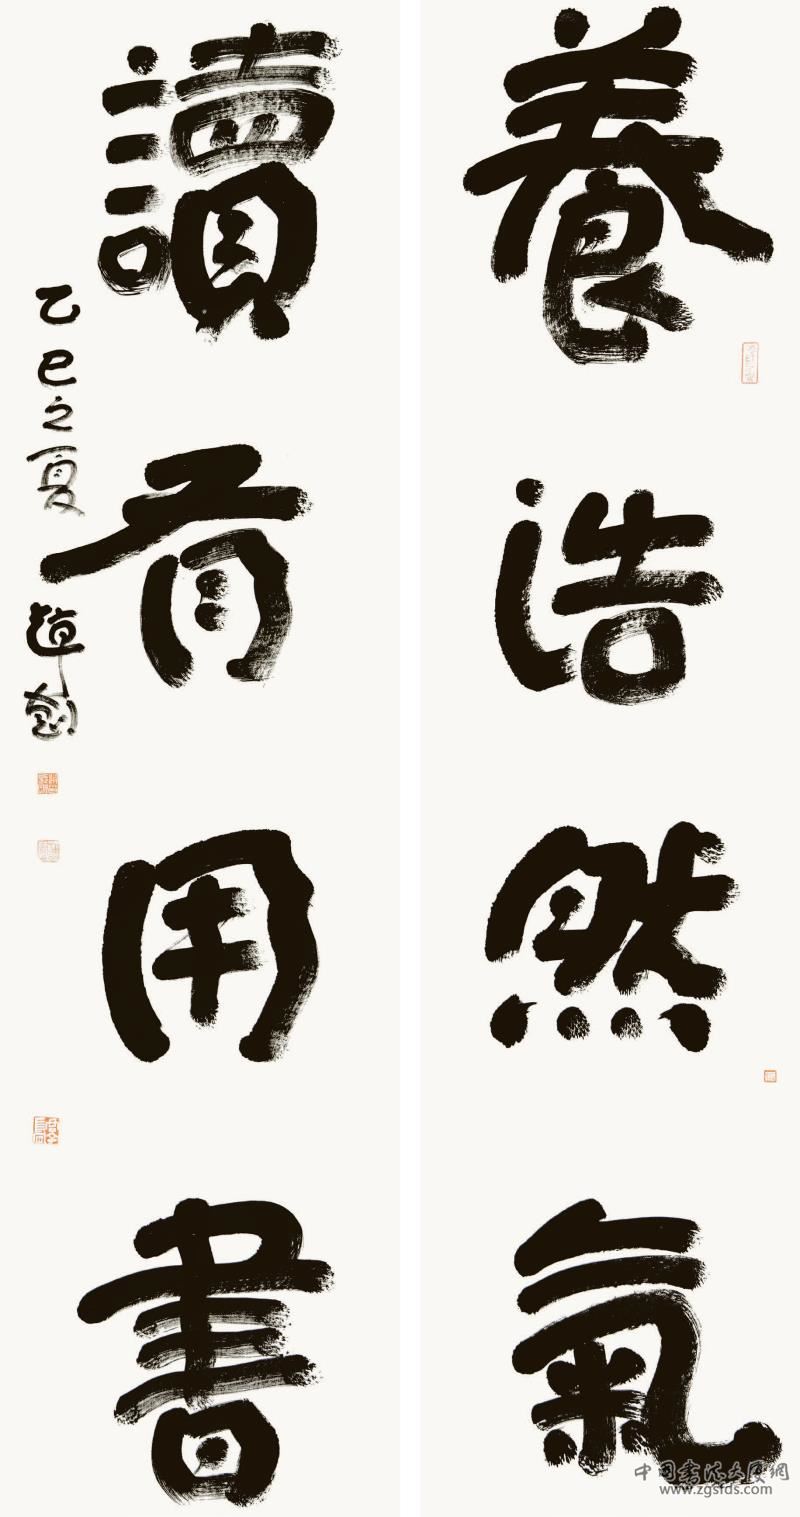 養浩然氣
讀有用書
乙巳之夏
中国书法大厦網
www.zgsfds.com